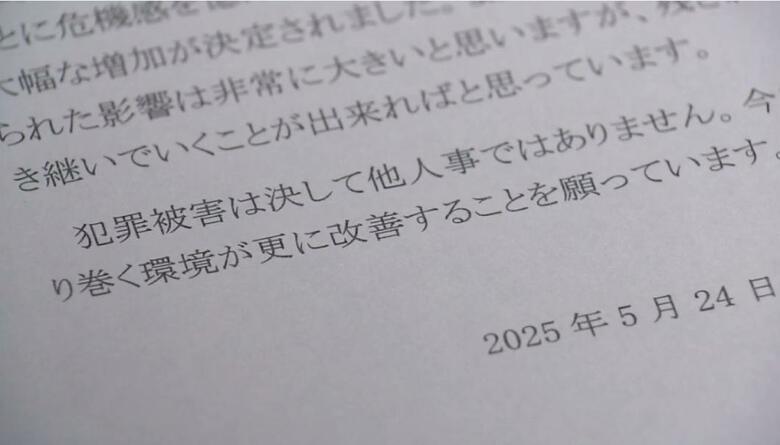 とに危機感を
大幅な増加が決定されました。
られた影響は非常に大きいと思いますが、残さ
き継いでいくことが出来ればと思っています。
犯罪被害は決して他人事ではありません。今
り巻く環境が更に改善することを願っています。
2025年5月24日